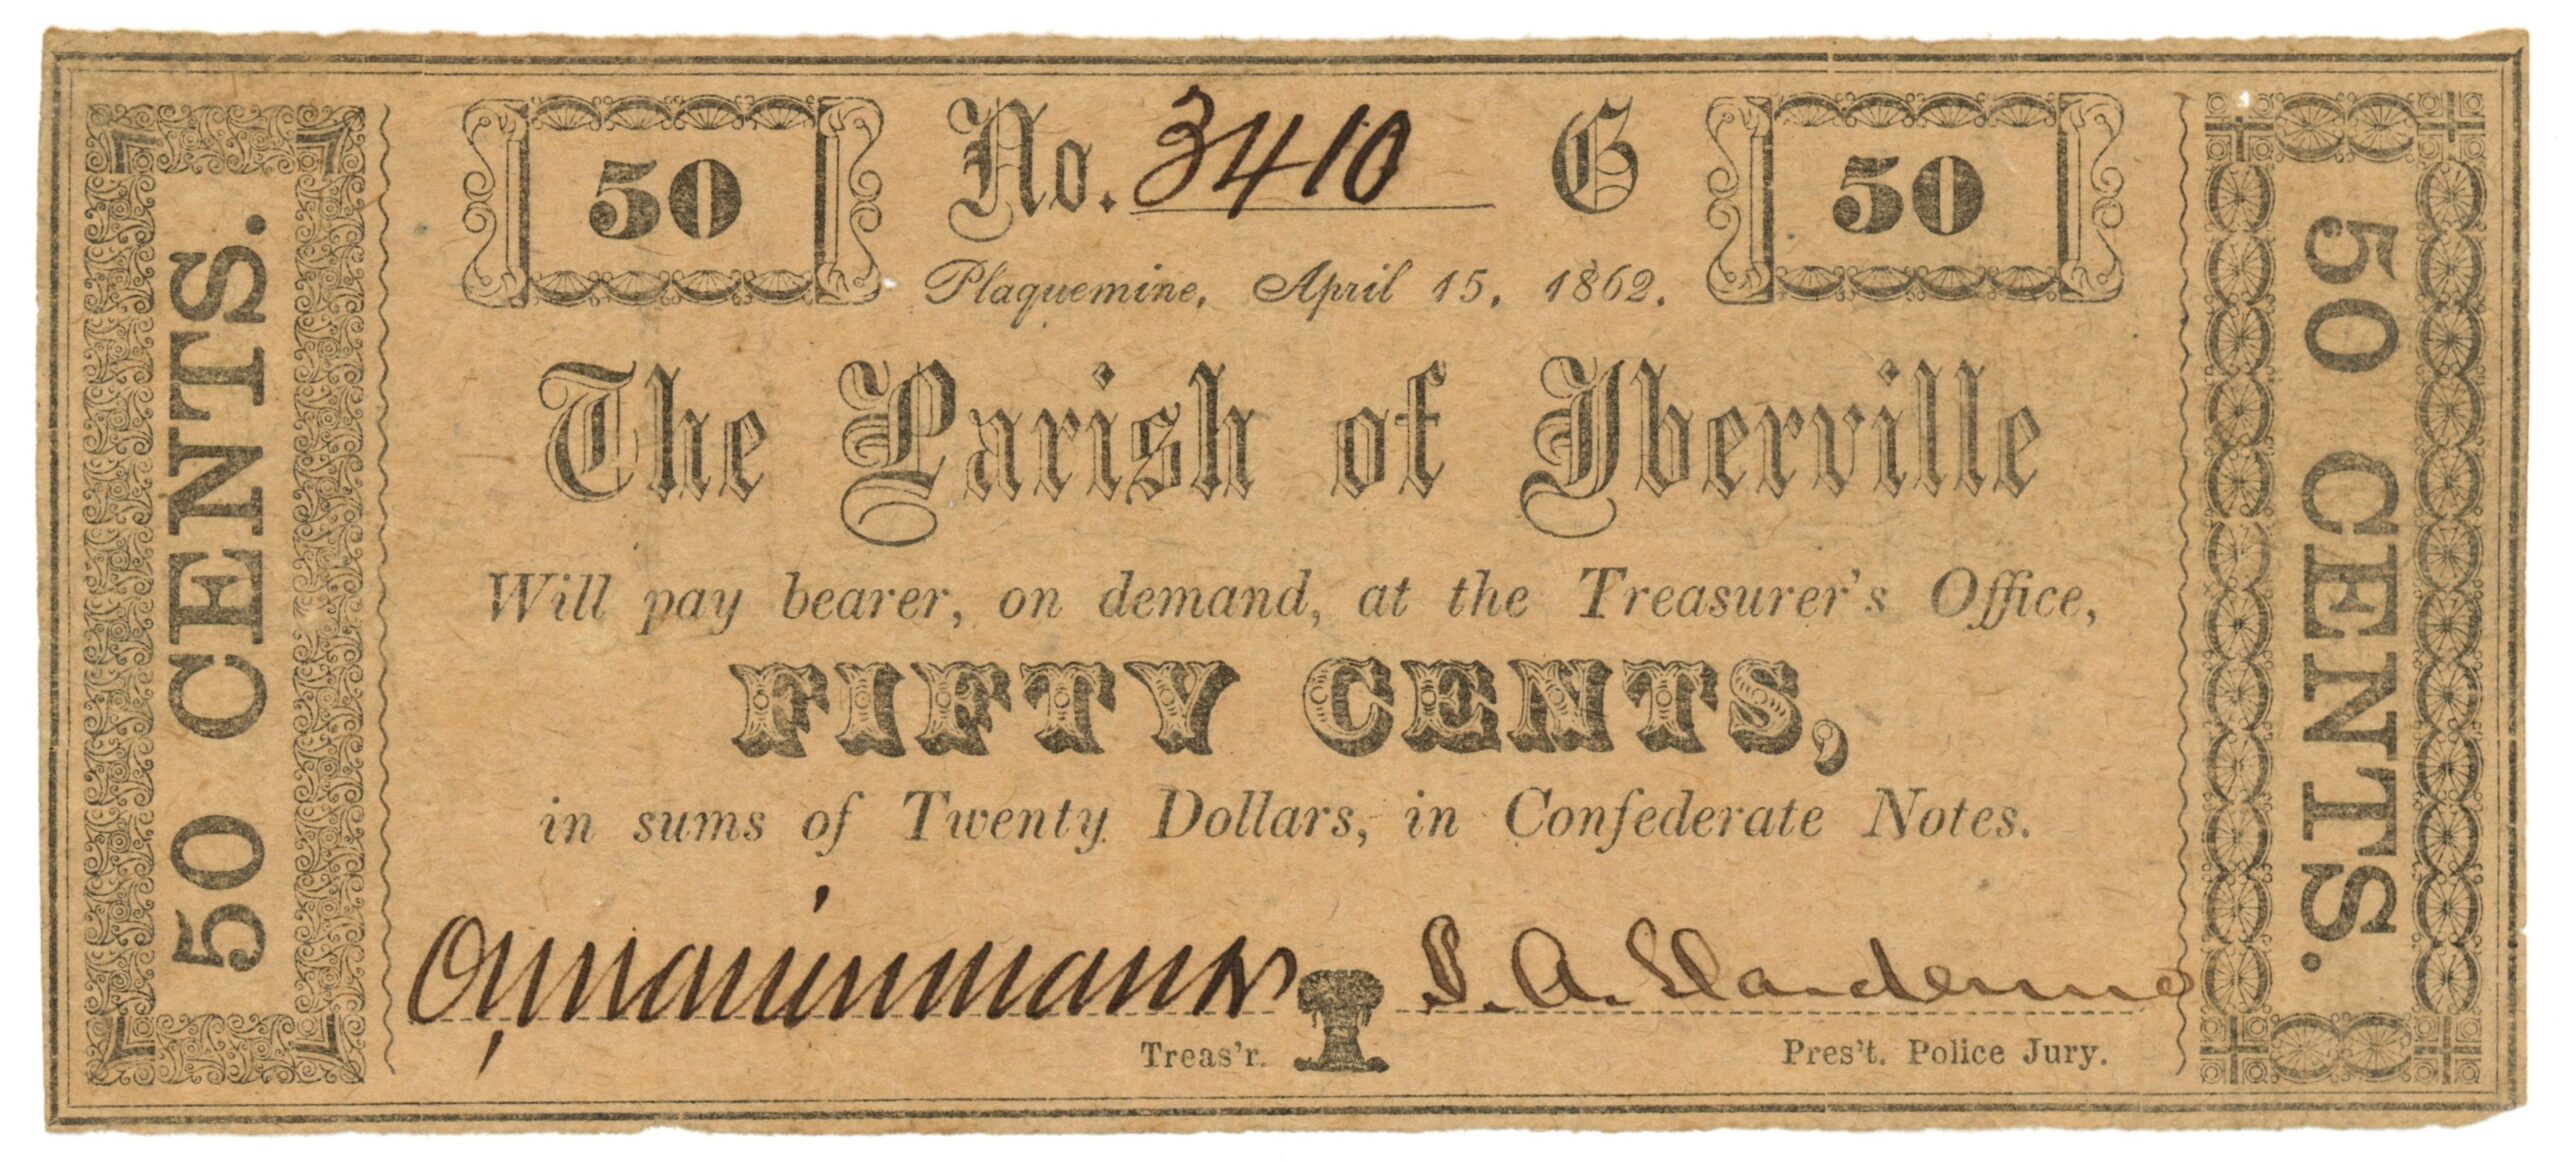 50 CENTS.
50
No. 3410 G
50
Plaquemine, April 15, 1862.
The Parish of Iberville
Will pay bearer, on demand, at the Treasurer's Office,
FIFTY CENTS,
in sums of Twenty Dollars, in Confederate Notes.
Treas'r.
Pres't. Police Jury.
50 CENTS.